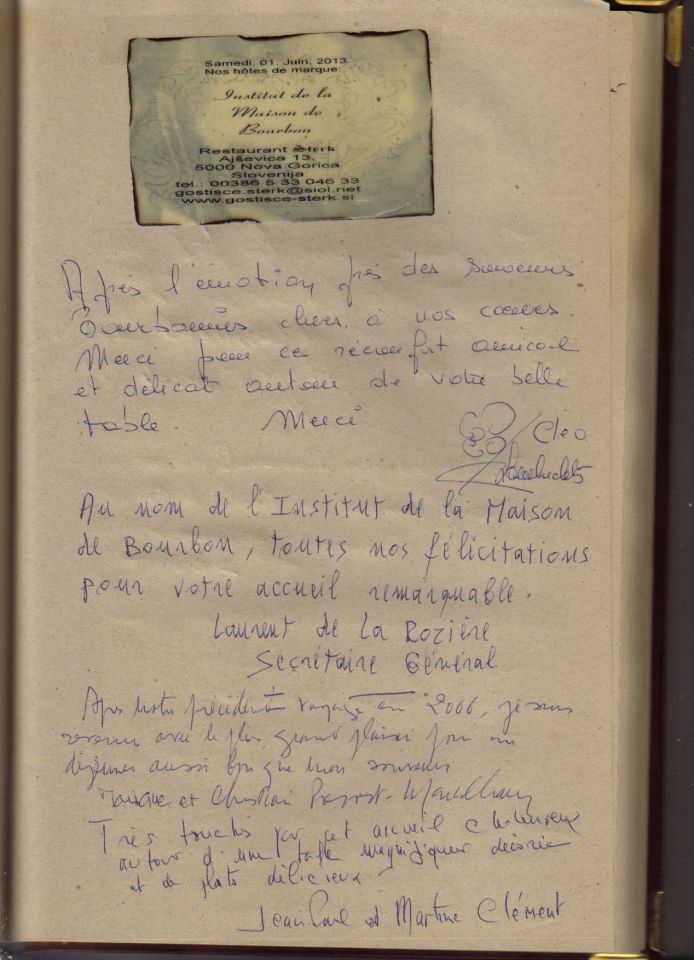 Samedi, 01. Juin, 2013
Nos hôtes de marque:
Institut de la
Maison de
Bourbon
Restaurant Šterk
Ajševica 13,
5000 Nova Gorica
Slovenija
tel.: 00386 5 33 046 33
gostisce.sterk@siol.net
www.gostisce-sterk.si
Après l'émotion près des souvenirs
Bourboniens chers à nos cœurs.
Merci pour ce réconfort amical
et délicat autour de votre belle
table. Merci
Cleo
Au nom de l'Institut de la Maison
de Bourbon, toutes nos félicitations
pour votre accueil remarquable.
Laurent de La Rozière
Secrétaire Général
Après notre précédent voyage en 2006, je suis
revenu avec le plus grand plaisir pour un
aussi bon que mon souvenir
et Christian
Très touchés par cet accueil chaleureux
autour d'une table magnifiquement décorée
et de plats délicieux.
Jean Paul et Martine Clément